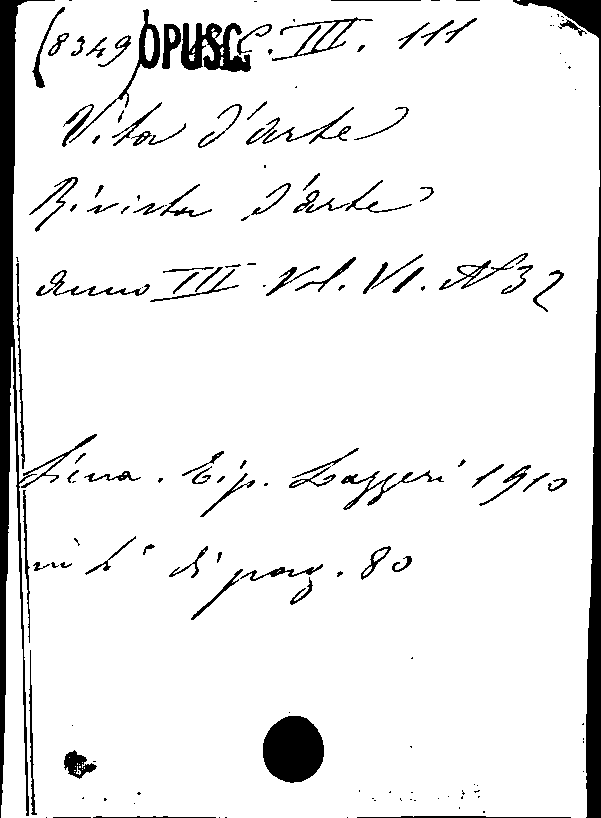 (8349) OPUSC. C. III. 111
Vita d'arte
Rivista d'arte
anno III Vol. VI. N° 32
Siena. Tip. Lazzeri 1910
in 4° di pag. 80